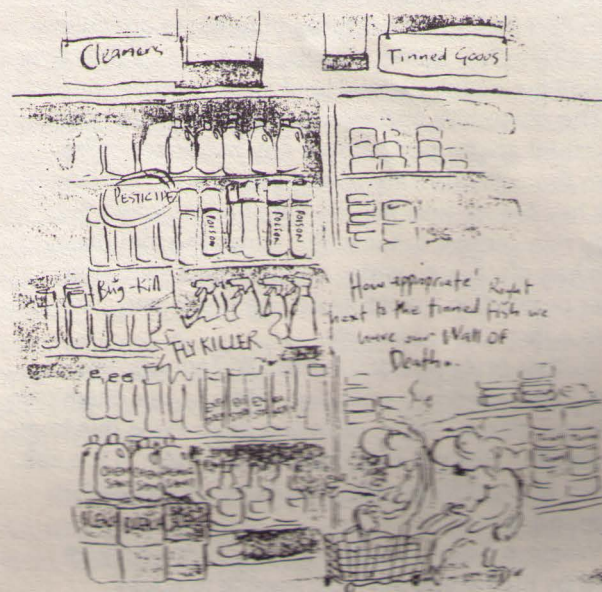 Cleaners
Tinned Goods
PESTICIDE
POISON
POISON
POISON
Bug-Kill
FLY KILLER
How appropriate! Right
next to the tinned fish we
have our Wall of
Death.
BLEACH
BLEACH